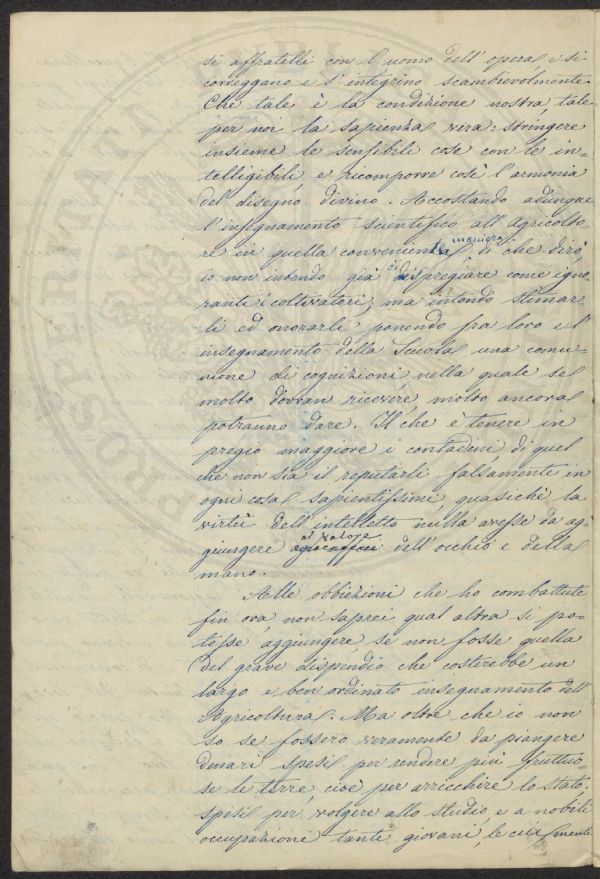 si affratelli con l'uomo dell'opera e si
correggano e s'integrino scambievolmente.
Che tale è la condizione nostra tale
per noi la sapienza vera: stringere
insieme le sensibili cose con le in-
telligibili, e ricomporre così l'armonia
del disegno divino. Accostando adunque
l'insegnamento scientifico all'Agricolto-
re in quella conveniente maniera di che dirò
io non intendo già dispregiare come igno-
ranti i coltivatori, ma intendo stimar-
li ed onorarli, ponendo fra loro e l'
insegnamento della Scuola una comu-
nione di cognizioni, nella quale se
molto dovran ricevere, molto ancora
potranno dare. Il che è tenere in
pregio maggiore i contadini, di quel
che non sia il reputarli falsamente in
ogni cosa sapientissimi, quasichè la
virtù dell'intelletto nulla avesse da ag-
giungere al valore dell'occhio e della
mano.
Alle obbiezioni che ho combattute
fin ora, non saprei qual altra si po-
tesse aggiungere se non fosse quella
del grave dispendio che costerebbe un
largo e ben ordinato insegnamento dell'
Agricoltura. Ma oltre che io non
so se fossero veramente da piangere
denari spesi per rendere più fruttuo-
se le terre, cioè per arricchire lo stato;
spesi per volgere allo studio, e a nobili
occupazioni tanti giovani, le cui menti